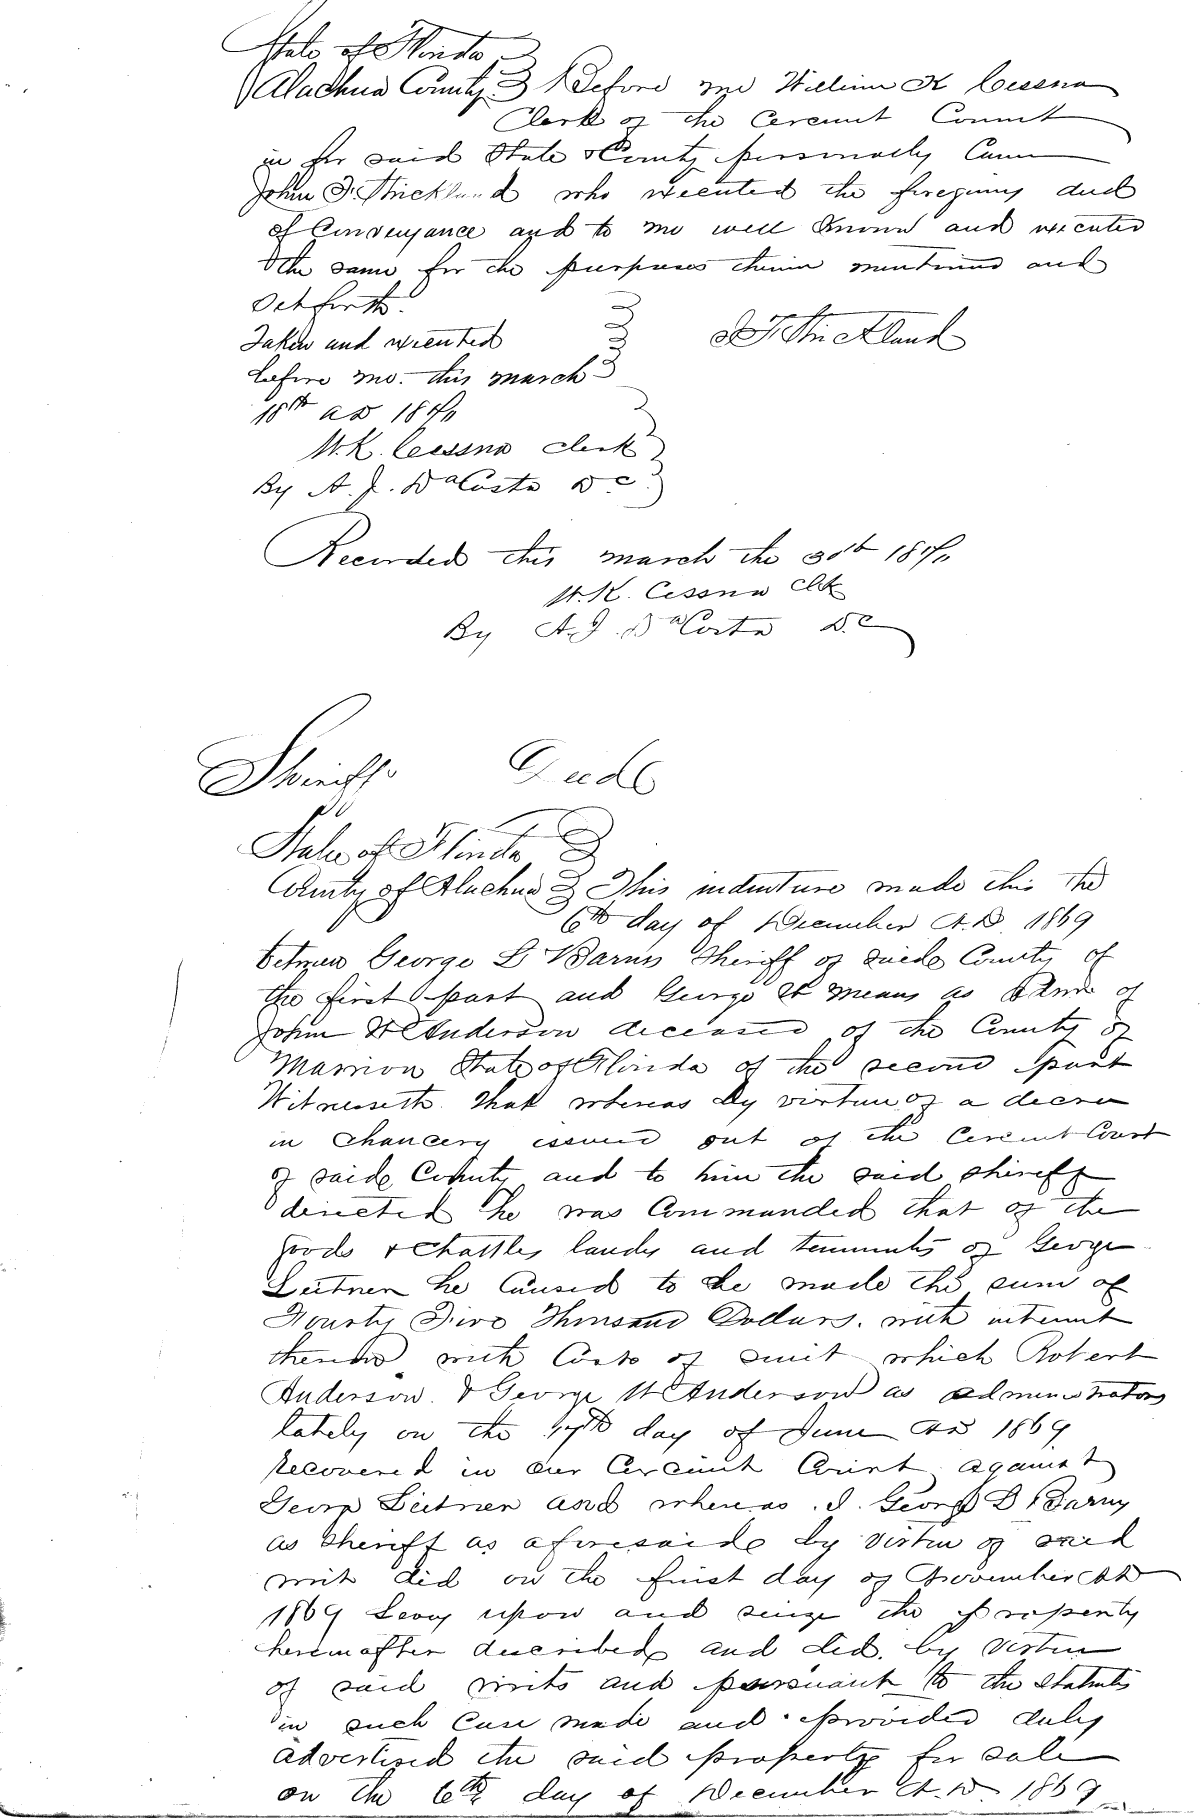 State of Florida
Alachua County Before me William K Cessna
Clerk of the Cercuit Count
in for said State & County personally Came
John T. Strickland who executed the foregoing deed
of Conveyance and to me well known and executed
the same for the purposes therein mentioned and
Set forth.
Taken and executed J T Strickland
before me. this march
18th AD 187
W. K. Cessna Clerk
By A. J. DaCosta D C.
Recorded this march the 30th 187
W. K. Cessna Clk
By A. J. DaCosta D. C
Sheriffs Deed
State of Florida
County of Alachua This indenture made this the
6th day of December A. D. 1869
between George L Barns Sheriff of saide County of
the first part and George W Means as of
John W Anderson deceased of the County of
Marrion State of Florida of the second part
Witnesseth. that whereas by virtue of a decree
in chancery issued out of the Cercuit Court
of saide County and to him the said shireff
directed he was Commanded that of the
goods & Chattles lands and tenments of George
Leitner he Caused to be made the sum of
Fourty Five Thousand Dollars. with interest
thereon with Costs of suit which Robert
Anderson & George W Anderson as administrators
lately on the 17th day of June AD 1869
recovered in our Cercuit Court against
Georg Leitner and whereas. I. George L Barns
as sheriff as aforesaide by virtue of said
writ did on the first day of November AD
1869 Levy upon and seize the property
hereinafter described and did. by virtue
of said writs and pursuant to the Statutes
in such Case made and provided duly
advertised the said property for sale
on the 6th day of December A. D. 1869